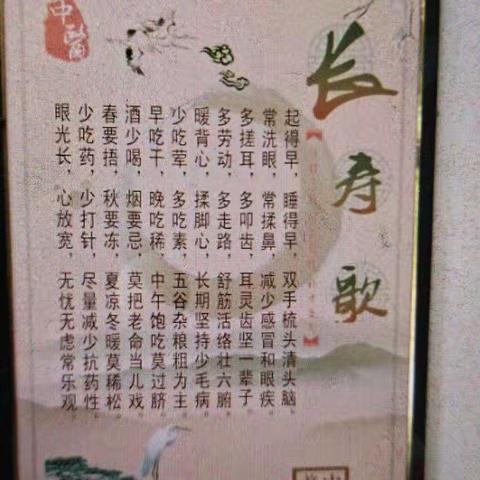 长寿歌
起得早，睡得早，双手梳头清头脑。
常洗眼，常揉鼻，减少感冒和眼疾。
多搓耳，多叩齿，耳灵齿坚一辈子。
多劳动，多走路，舒筋活络壮六腑。
暖背心，揉脚心，长期坚持少毛病。
少吃荤，多吃素，五谷杂粮粗为主。
早吃干，晚吃稀，中午饱吃莫过脐。
酒少喝，烟要忌，莫把老命当儿戏。
春要捂，秋要冻，夏凉冬暖莫稀松。
少吃药，少打针，尽量减少抗药性。
眼光长，心放宽，无忧无虑常乐观。
中醫